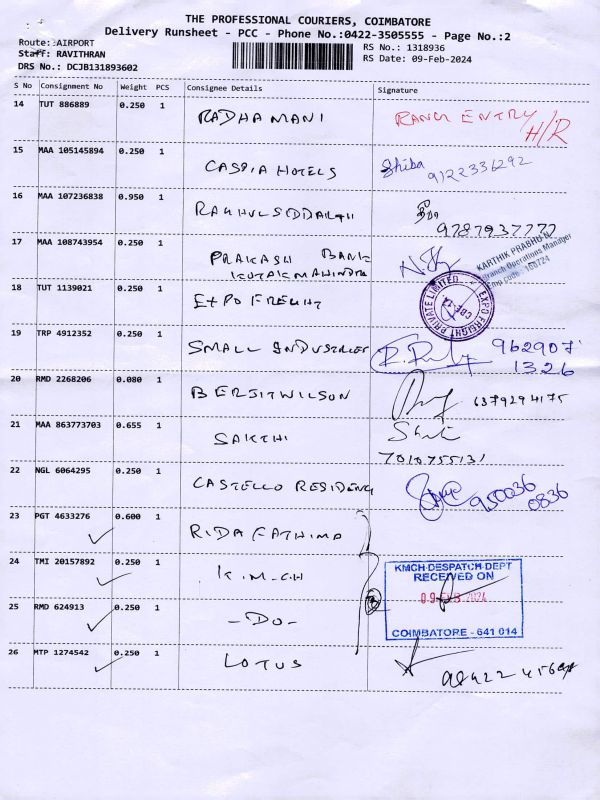 THE PROFESSIONAL COURIERS, COIMBATORE
Delivery Runsheet - PCC - Phone No.:0422-3505555 - Page No.:2
Route: AIRPORT
RS No.: 1318936
Staff: RAVITHRAN
RS Date: 09-Feb-2024
DRS No.: DCJB131893602
S No Consignment No Weight PCS Consignee Details Signature
14 TUT 886889 0.250 1 RADHA MANI ENTRY H/R
15 MAA 105145894 0.250 1 CASPIA HOTELS Shiba
9122336292
16 MAA 107236838 0.950 1 RAHUL SIDDARTH
9787937777
17 MAA 108743954 0.250 1 PRAKASH BANK
KOTAK MAHINDRA
KARTHIK PRABHU N
Branch Operations Manager
Emp code - 168724
18 TUT 1139021 0.250 1 EXPO FREIGHT
EXPO FREIGHT PRIVATE LIMITED
19 TRP 4912352 0.250 1 SMALL INDUSTRIES 962907
1326
20 RMD 2268206 0.080 1 BERJITWILSON 6379294175
21 MAA 863773703 0.655 1 SAKTHI
7010755131
22 NGL 6064295 0.250 1 CASTELLO RESIDENCY 950036
0836
23 PGT 4633276 0.600 1 RIDA FATHIMA
24 TMI 20157892 0.250 1 K.M.CH
KMCH DESPATCH DEPT
RECEIVED ON
09 FEB 2024
25 RMD 624913 0.250 1 -DO-
COIMBATORE - 641 014
26 MTP 1274542 0.250 1 LOTUS